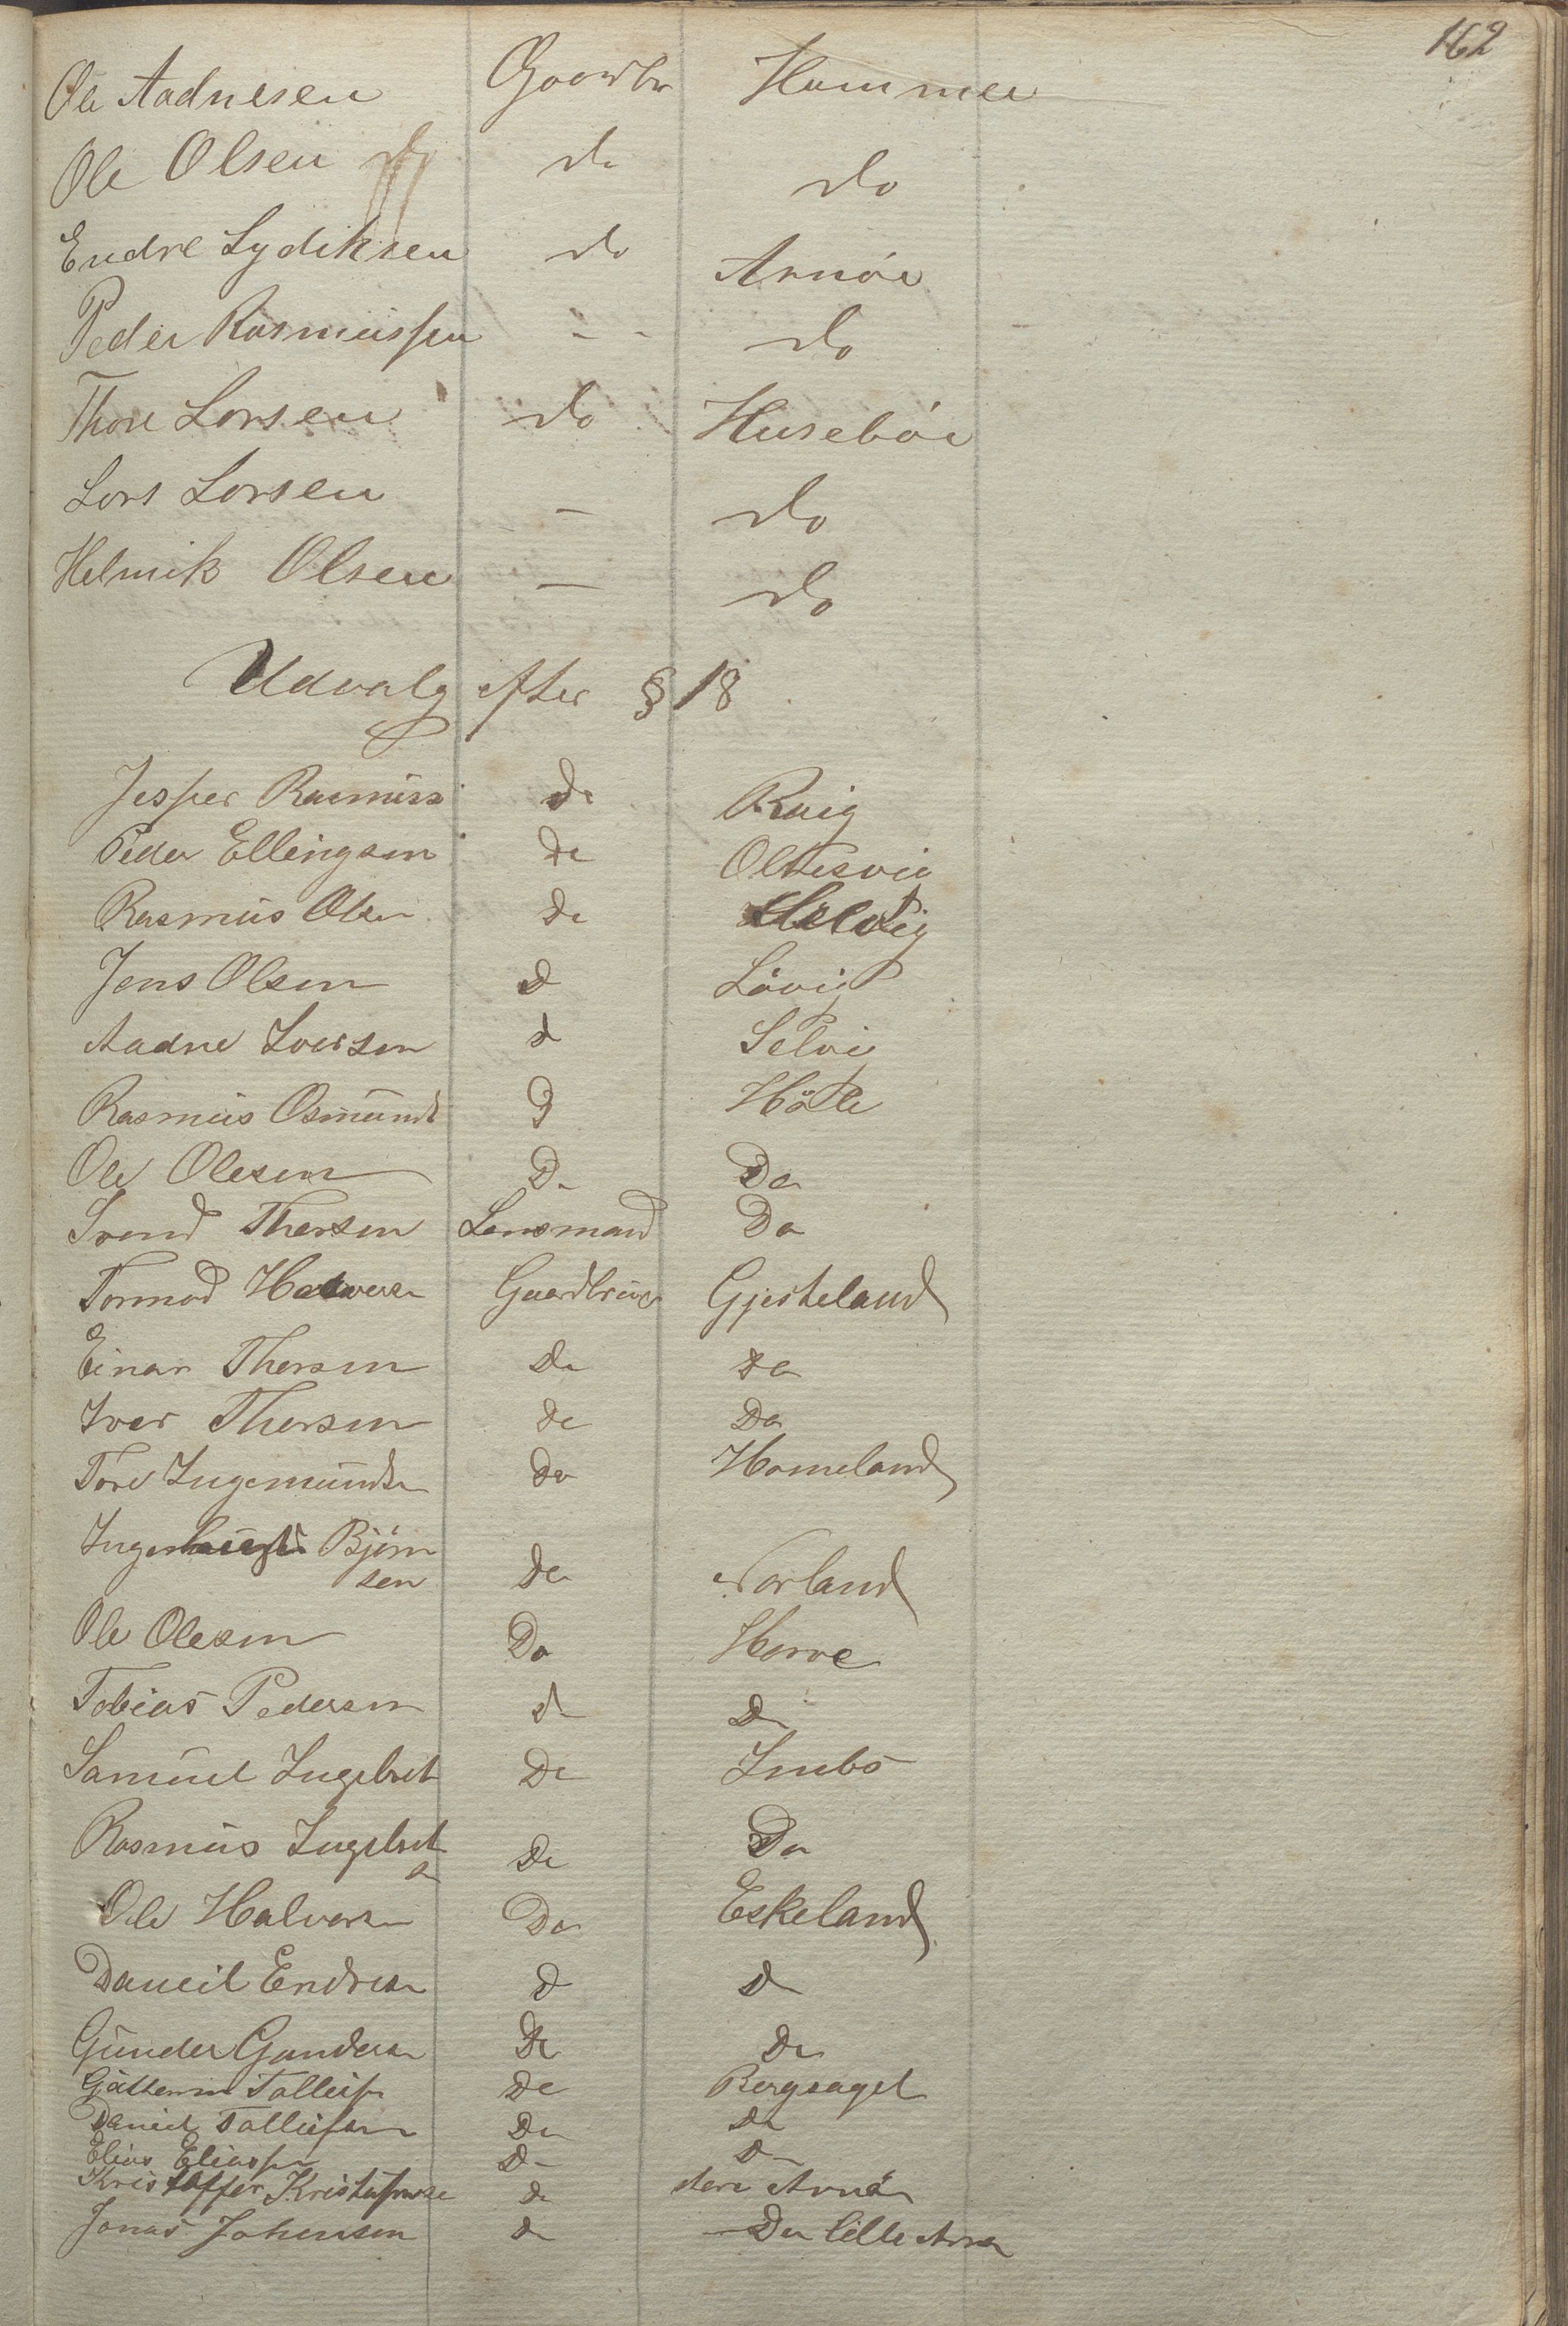 162
Ole Aadnesen Gaardbr Hammer
Ole Olsen do do
Endre Lydiksen do Arnöe
Peder Rasmussen - - do
Thore Larsen do Huseböe
Lars Larsen - do
Helmik Olsen - do
Udvalg efter § 18
Jesper Rasmuss Do
Peder Ellingsen Do Oltesvig
Rasmus Olsen Do
Jens Olsen D Lövig
Aadne Iversen d Selvig
Rasmus Osmunds D Hölle
Ole Olesen Do Do
Svend Thorsen Lensmand Do
Tormod Halvorsen Gaardbruger Gjesteland
Einar Thorsen Do Do
Iver Thorsen Do Do
Tore Ingemundsen Do Homeland
Bjørn
sen Do Norland
Ole Olesen Do Horve
Tobias Pedersen D Do
Samuel Ingebret Do Imbs
Rasmus Ingebret
sn Do Do
Ole Halvorsen Do Eskeland
Daneil Endresen D D
Gunder Gundersen Do Do
Tolleifsn Do Bergsagel
Daniel Tolleifsen Do Do
Elias Eliassen D- D-
Kristoffer Do store Arnö
Jonas Johnsen D Do lille Arnö